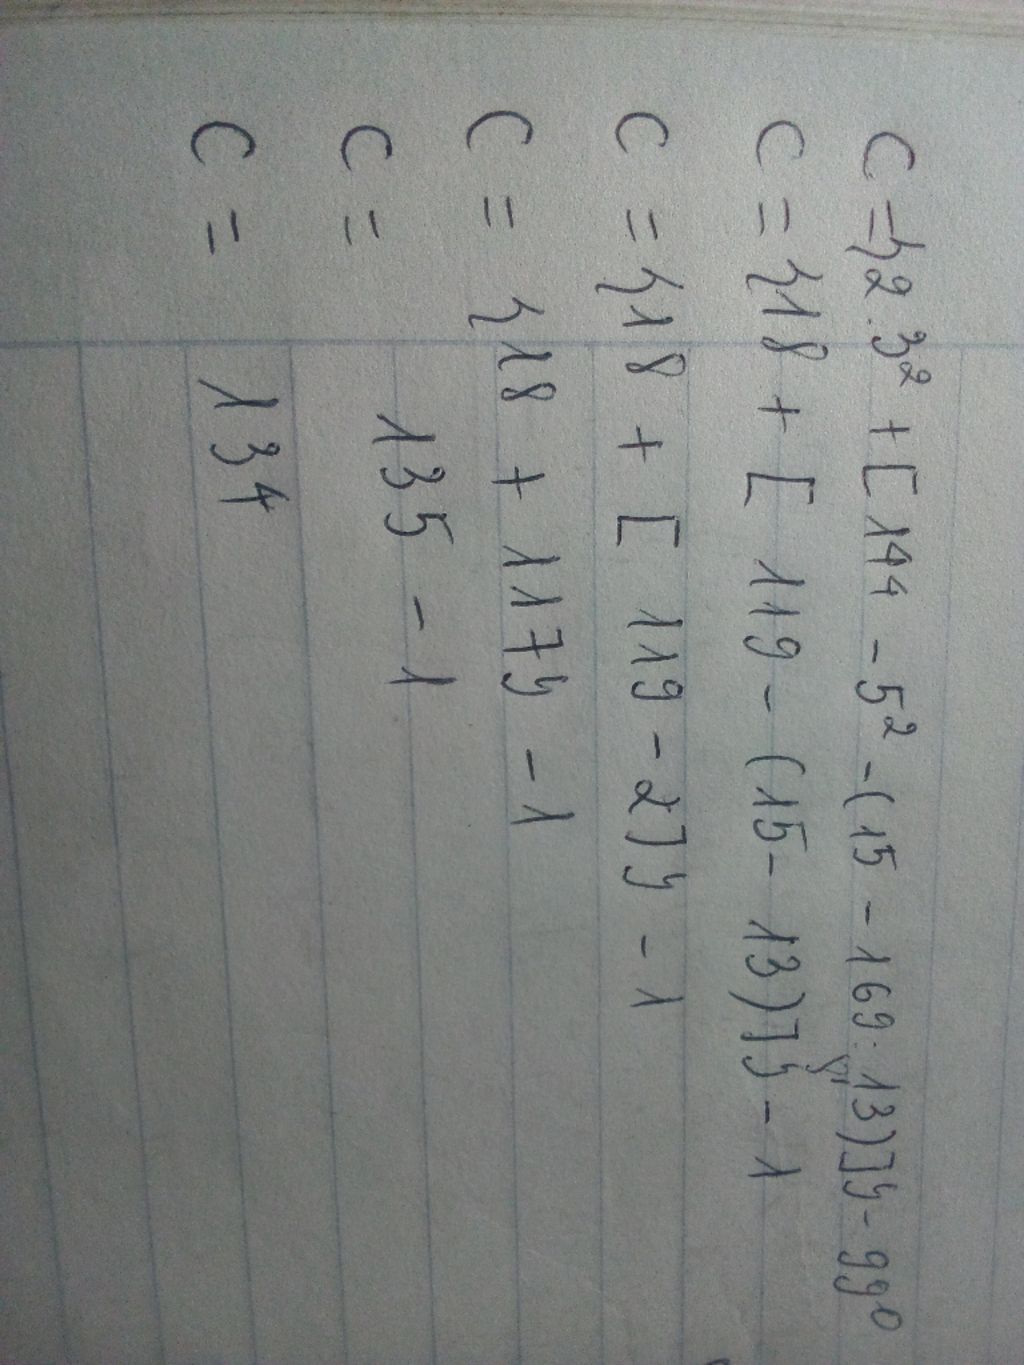 C = {2.3² + [144 - 5² - (15 - 169:13)]} - 99⁰
C = {18 + [119 - (15 - 13)]} - 1
C = {18 + [119 - 2]} - 1
C = {18 + 117} - 1
C = 135 - 1
C = 134